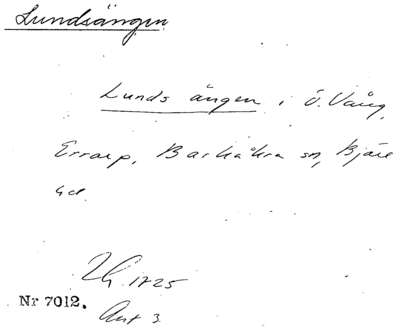 Lundsängen
Lunds ängen i Ö. Vång,
Errarp, Barkåkra sn, Bjäre
hd.
1725
Nr 7012.
Akt 3.